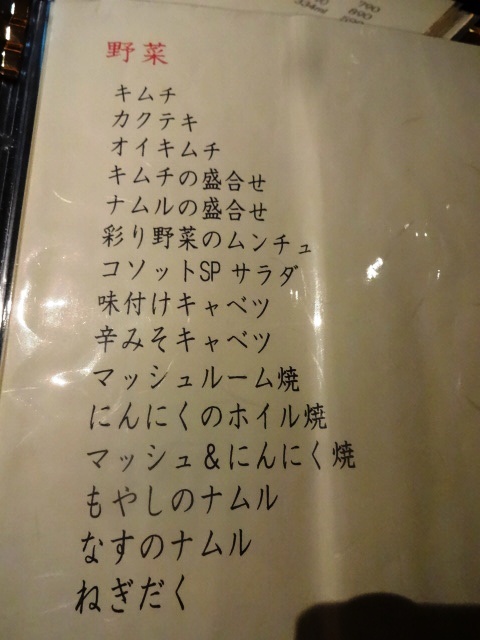 790
334ml 890
野菜
キムチ
カクテキ
オイキムチ
キムチの盛合せ
ナムルの盛合せ
彩り野菜のムンチュ
コソットSP サラダ
味付けキャベツ
辛みそキャベツ
マッシュルーム焼
にんにくのホイル焼
マッシュ＆にんにく焼
もやしのナムル
なすのナムル
ねぎだく